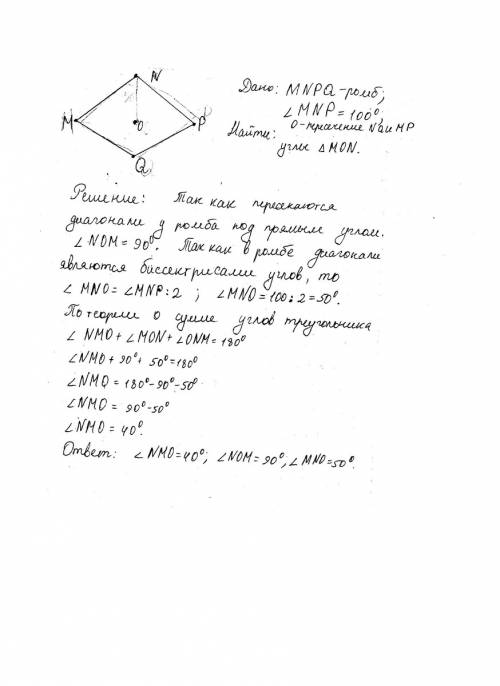 N
M
O
P
Q
Дано: MNPQ-ромб;
∠MNP = 100°,
O-пересечение NQ и MP
Найти:
углы △MON.
Решение: Так как пересекаются
диагонали у ромба под прямым углом.
∠NOM = 90°. Так как в ромбе диагонали
являются биссектрисами углов, то
∠MNO = ∠MNP : 2 ; ∠MNO = 100 : 2 = 50°.
По теореме о сумме углов треугольника
∠NMO + ∠MON + ∠ONM = 180°
∠NMO + 90° + 50° = 180°
∠NMO = 180° - 90° - 50°
∠NMO = 90° - 50°
∠NMO = 40°.
Ответ: ∠NMO = 40°; ∠NOM = 90°, ∠MNO = 50°.